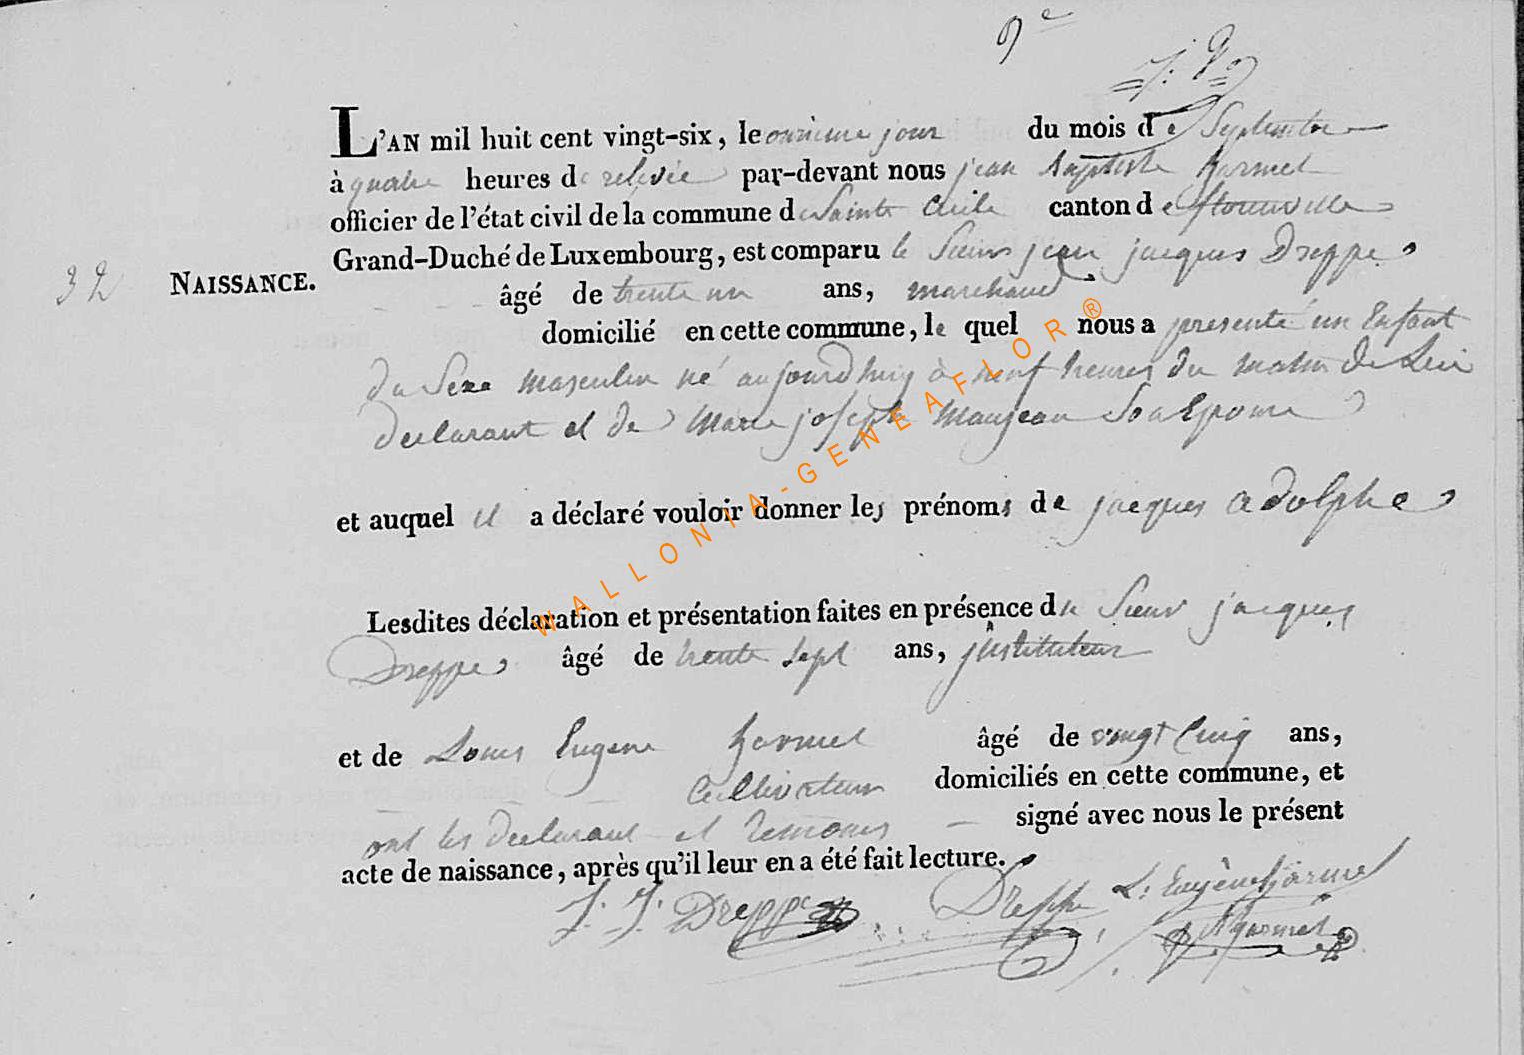 9e
L'AN mil huit cent vingt-six, le onzieme jour du mois de Septembre
à quatre heures de relevée par-devant nous jean Baptiste
officier de l'état civil de la commune de Sainte Cécile canton de
Grand-Duché de Luxembourg, est comparu le Sieur jean jacques Dreppe
32 NAISSANCE.
âgé de trente un ans, marchand
domicilié en cette commune, le quel nous a presenté un Enfant
du Sexe masculin né aujourdhuy à neuf heures du matin de Lui
declarant et de Marie joseph Manjean Son Epouse
et auquel il a déclaré vouloir donner les prénoms de jacques adolphe
Lesdites déclaration et présentation faites en présence du Sieur jacques
Dreppe âgé de trente sept ans, justituteur
et de Louis Eugene âgé de vingt Cinq ans,
Cultivateur domiciliés en cette commune, et
ont les declarant et temoins signé avec nous le présent
acte de naissance, après qu'il leur en a été fait lecture.
J. J. Dreppe Dreppe L: Eugène
WALLONIA-GENEAFLOR®